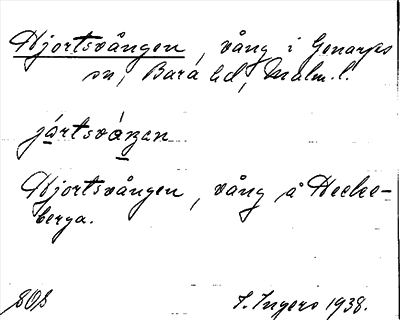 Hjortsvången, vång i Genarps
sn, Bara hd, Malm. l.
jártsváŋen
Hjortsvången, vång å Hecke-
berga.
I. Ingers 1938.